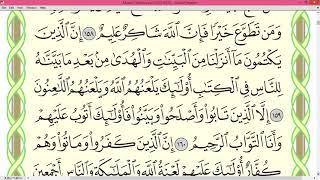 وَمَن تَطَوَّعَ خَيْرًا فَإِنَّ ٱللَّهَ شَاكِرٌ عَلِيمٌ ١٥٨ إِنَّ ٱلَّذِينَ
يَكْتُمُونَ مَآ أَنزَلْنَا مِنَ ٱلْبَيِّنَٰتِ وَٱلْهُدَىٰ مِنۢ بَعْدِ مَا بَيَّنَّٰهُ
لِلنَّاسِ فِى ٱلْكِتَٰبِ أُو۟لَٰٓئِكَ يَلْعَنُهُمُ ٱللَّهُ وَيَلْعَنُهُمُ ٱللَّٰعِنُونَ
١٥٩ إِلَّا ٱلَّذِينَ تَابُوا۟ وَأَصْلَحُوا۟ وَبَيَّنُوا۟ فَأُو۟لَٰٓئِكَ أَتُوبُ عَلَيْهِمْ
وَأَنَا ٱلتَّوَّابُ ٱلرَّحِيمُ ١٦٠ إِنَّ ٱلَّذِينَ كَفَرُوا۟ وَمَاتُوا۟ وَهُمْ
كُفَّارٌ أُو۟لَٰٓئِكَ عَلَيْهِمْ لَعْنَةُ ٱللَّهِ وَٱلْمَلَٰٓئِكَةِ وَٱلنَّاسِ أَجْمَعِينَ